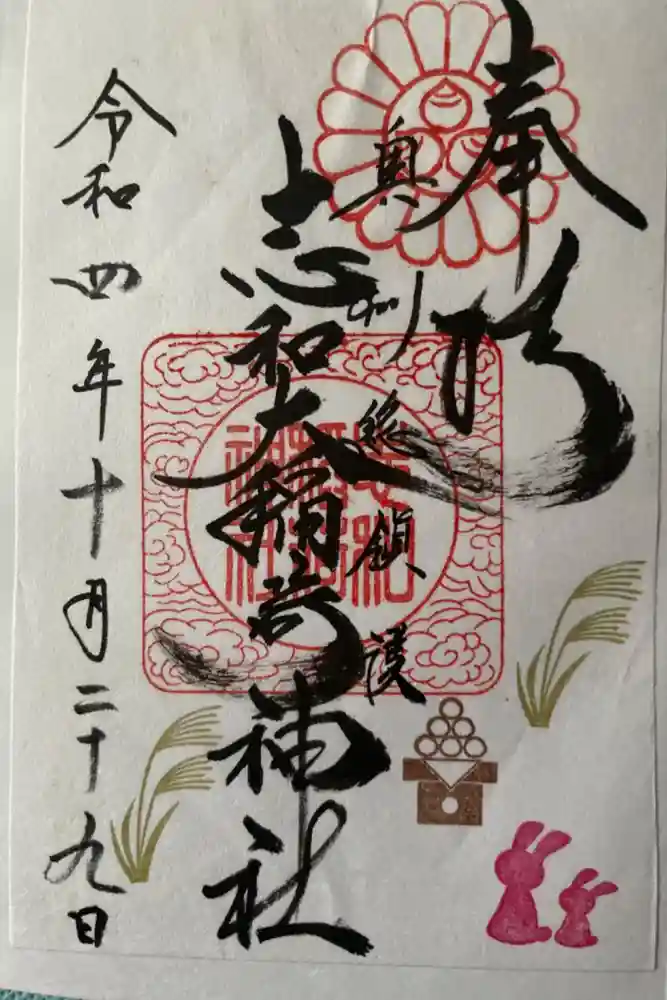 奉拝
奥州総鎮護
志和大稲荷神社
令和四年十月二十九日